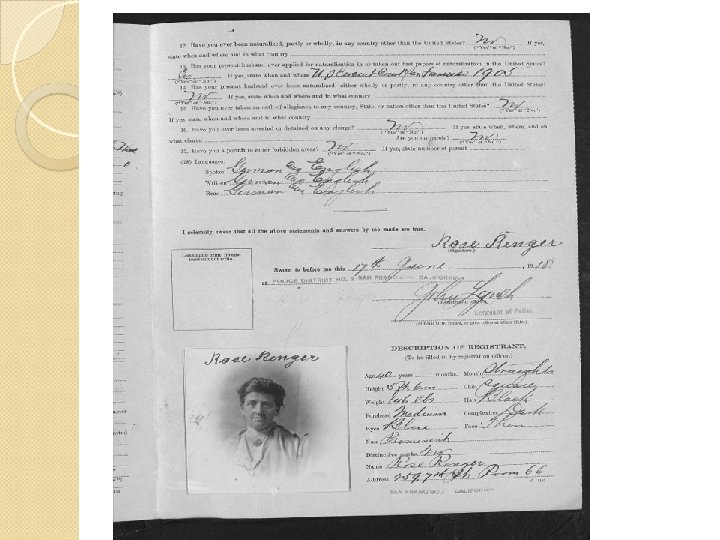 12. Have you ever been naturalized, partly or wholly, in any country other than the United States? No If yes,
("Yes" or "No.")
state when and where and in what country
13. Has your present husband ever applied for naturalization in or taken out first papers of naturalization in the United States?
If yes, state when and where U.S. Circuit Court San Francisco 1903
("Yes" or "No.")
14. Has your present husband ever been naturalized, either wholly or partly, in any country other than the United States?
No If yes, state when and where and in what country
("Yes" or "No.")
15. Have you ever taken an oath of allegiance to any country, State, or nation other than the United States? No
("Yes" or "No.")
If yes, state when and where and in what country
16. Have you ever been arrested or detained on any charge? No If yes, state when, where, and on
("Yes" or "No.")
what charge Are you on parole? No
("Yes" or "No.")
17. Have you a permit to enter forbidden areas? No If yes, state number of permit
("Yes" or "No.")
(18) Languages.
Spoken German English
Written German English
Read German English
I solemnly swear that all the above statements and answers by me made are true.
Rose Renger
(Signature.)
Left thumb print, if registrant can not write.
Sworn to before me this 17th June, 1918
at POLICE DISTRICT NO. SAN FRANCISCO CALIFORNIA
John Lynch
Sergeant of Police
Rose Renger
DESCRIPTION OF REGISTRANT.
(To be filled in by registration officer.)
Age years months. Mouth Straight
Height 5 ft 6 in Chin Square
Weight lbs Hair Black
Forehead Medium Complexion Dark
Eyes Blue Face Thin
Nose Prominent
Distinctive marks No
Name Rose Renger
Address 259 7th St Room 66
SAN FRANCISCO CALIFORNIA